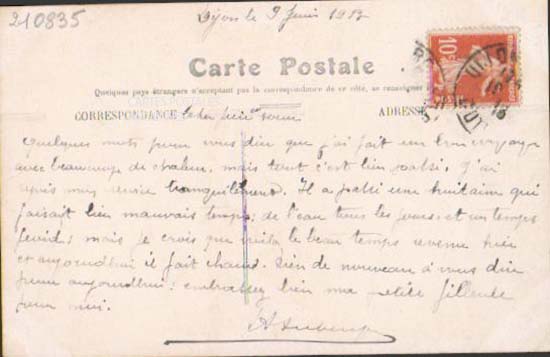 210835
Dijon le 9 Juin 1913
Carte Postale
Quelques pays étrangers n'acceptant pas la correspondance de ce côté, se renseigner
CARTES POSTALES
CORRESPONDANCE
ADRESSE
10
Quelques mots pour vous dire que j'ai fait un bon voyage
avec beaucoup de chaleur, mais tout c'est bien passé, j'ai
repris mon service tranquillement. Il a passé une huitaine qui
faisait bien mauvais temps; de l'eau tous les jours, et un temps
froid; mais je crois que voila le beau temps revenu hier
et aujourdhui il fait chaud. Rien de nouveau à vous dire
pour aujourdhui; embrassez bien ma petite filleule
pour moi.